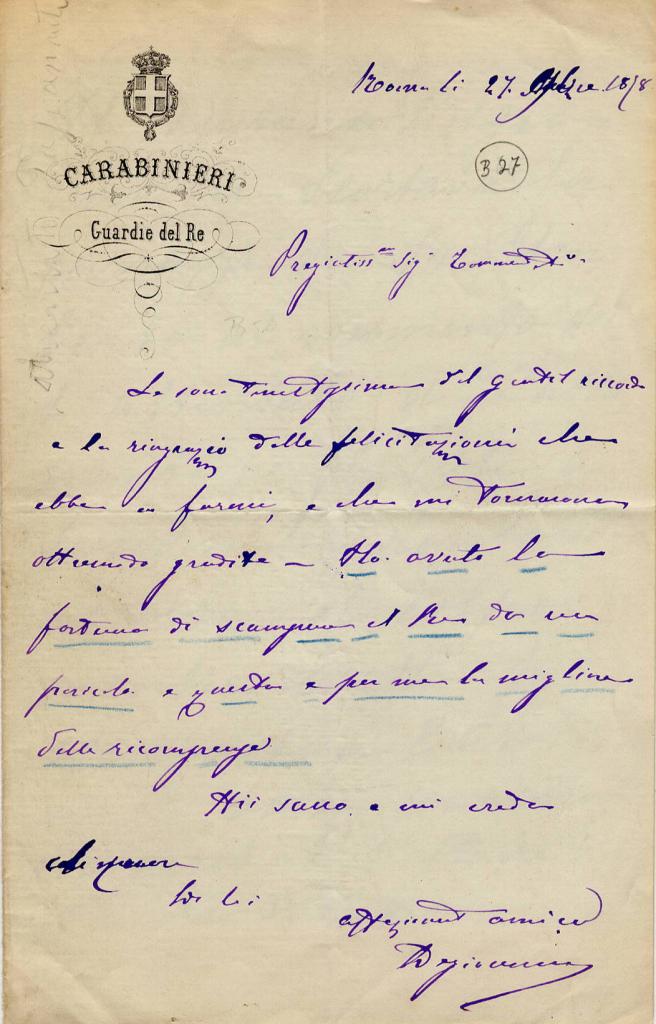 CARABINIERI
Guardie del Re
Roma li 27 9bre 1878
B 27
Pregiatiss Sig Commendre
Le sono del gentil ricordo
e la ringrazio delle felicitazioni che
ebbe a farmi, e che mi tornarono
gradite — Ho avuto la
fortuna di scampare il Re da un
pericolo e questa e per me la migliore
delle ricompense
Stii sano e mi creda
di Lei
affezionat amico